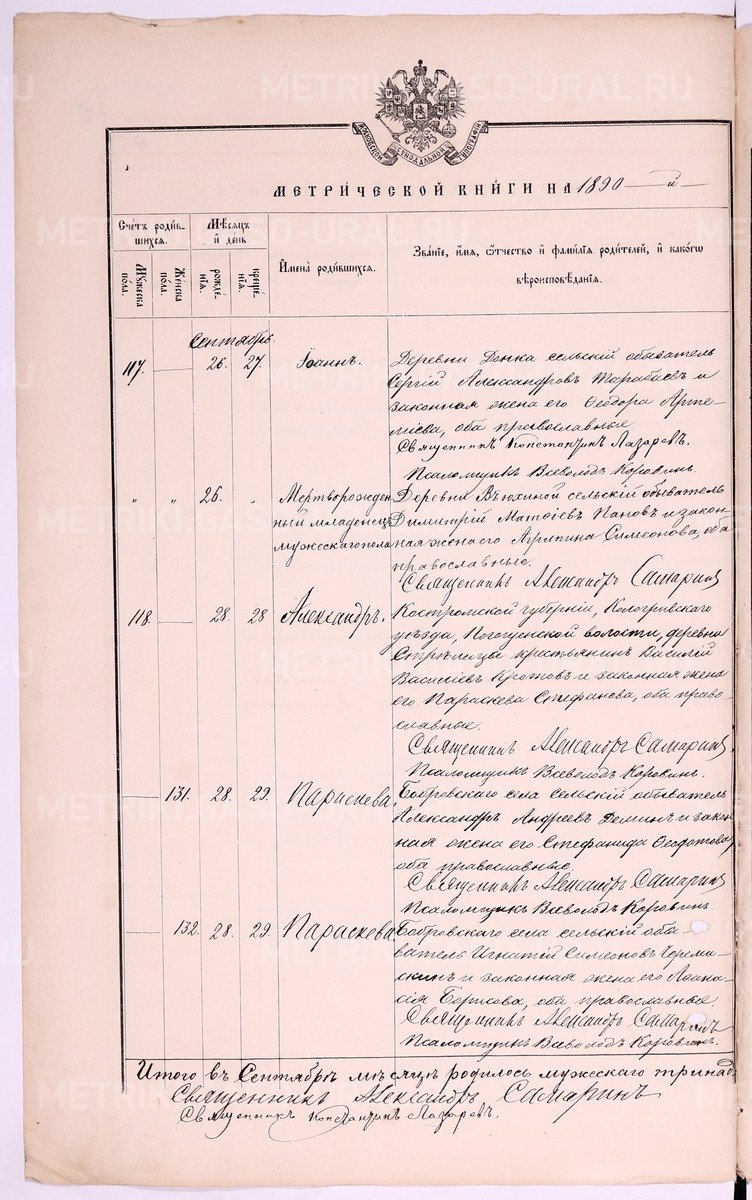 МОСКОВСКОЙ СѴНОДАЛЬНОЙ ТИПОГРАФІИ
МЕТРИ́ЧЕСКОЙ КНИ́ГИ НА 1890 й
Сче́тъ роди́в-
шихся.
Мѣ́сяцъ
и҆ де́нь
И҆мена̀ роди́вшихся.
Зва́нїе, и҆́мя, ѻ҆́тчество и҆ фами́лїя роди́телей, и҆ како́гѡ
вѣроисповѣ́данїя.
Мꙋ́жеска
по́ла.
Же́нска
по́ла.
рожде́-
нїя.
креще́-
нїя.
Сентябрь.
117. 26. 27. Іоаннъ. Деревни Донка сельскій обыватель
Сергій Александровъ Тарабаевъ и
законная жена его Ѳеодора Арте-
міева, оба православные.
Священникъ Константинъ Лазаревъ.
Псаломщикъ Всеволодъ Коровинъ.
" " 26. " Мертворожден Деревни Вьюхиной сельскій обыватель
ный младенецъ Димитрій Матѳіевъ Пановъ и закон-
мужескаго пола ная жена его Агрипина Симеонова, оба
православные.
Священникъ Александръ Самаринъ
118. 28. 28 Александръ. Костромской губерніи, Кологривскаго
уѣзда, волости, деревни
Стрѣлицы крестьянинъ Василій
Васильевъ Кротовъ и законная жена
его Параскева Стефанова, оба право-
славные.
Священникъ Александръ Самаринъ
Псаломщикъ Всеволодъ Коровинъ.
131. 28. 29. Параскева. Бобровскаго села сельскій обыватель
Александръ Андреевъ Деминъ и закон
ная жена его Стефанида Ѳеофотова,
оба православные.
Священникъ Александръ Самаринъ
Псаломщикъ Всеволодъ Коровинъ.
132. 28. 29. Параскева. Бобровскаго села сельскій обы-
ватель Игнатій Симеоновъ Череми-
скинъ и законная жена его Аѳана-
сія Борисова, оба православные
Священникъ Александръ Самаринъ
Псаломщикъ Всеволодъ Коровинъ.
Итого въ Сентябрѣ мѣсяцѣ родилось мужескаго тринад
Священникъ Александръ Самаринъ
Священникъ Константинъ Лазаревъ.